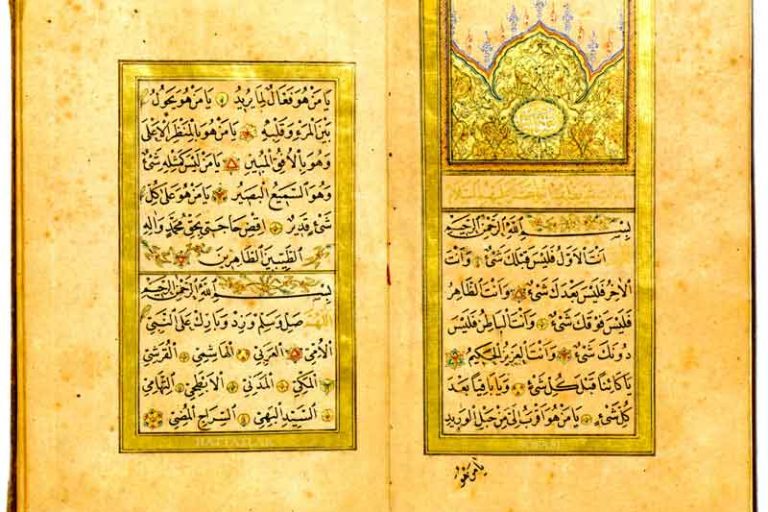 بسم الله الرحمن الرحيم
انت الاول فليس قبلك شئ وانت
الاخر فليس بعدك شئ وانت الظاهر
فليس فوقك شئ وانت الباطن فليس
دونك شئ وانت العزيز الحكيم
يا كائنا قبل كل شئ ويا باقيا بعد
كل شئ يا من هو اقرب الى من حبل الوريد
يا من هو
يا من هو فعال لما يريد يا من هو يحول
بين المرء وقلبه يا من هو بالمنظر الاعلى
وهو بالافق المبين يا من ليس كمثله شئ
وهو السميع البصير يا من هو على كل
شئ قدير اقض حاجتى بحق محمد واله
الطيبين الطاهرين
بسم الله الرحمن الرحيم
اللهم صل وسلم وزد وبارك على النبى
الامى العربى الهاشمى القرشى
المكى المدنى الابطحى التهامى
السيد البهى السراج المضئ
HATTATLAR